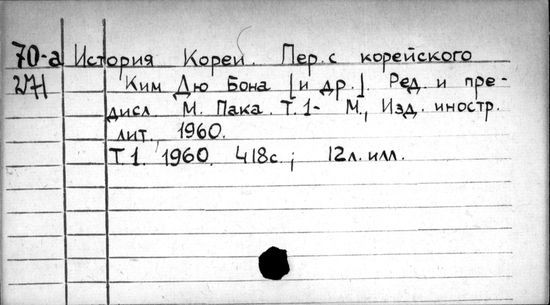 70-а История Кореи. Пер. с корейского
Ким Дю Бона [и др.]. Ред. и пре-
дисл. М. Пака. Т. 1- М., Изд. иностр.
лит., 1960.
Т 1. 1960. 418с.; 12л. илл.